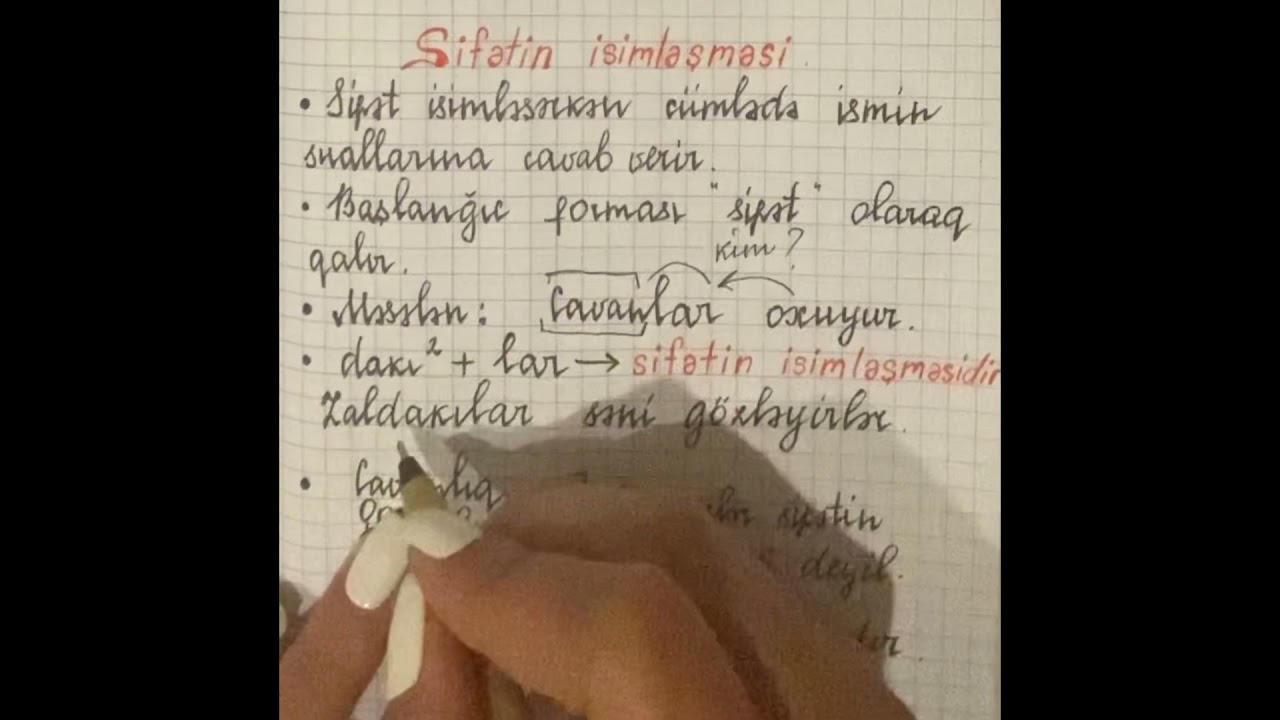 Sifətin isimləşməsi
• Sifət isimləşərkən cümlədə ismin
suallarına cavab verir.
• Başlanğıc forması "sifət" olaraq
kim?
qalır.
• Məsələn: Cavanlar oxuyur.
• dakı² + lar → sifətin isimləşməsidir
Zaldakılar səni gözləyirlər.
•
sifətin
deyil.